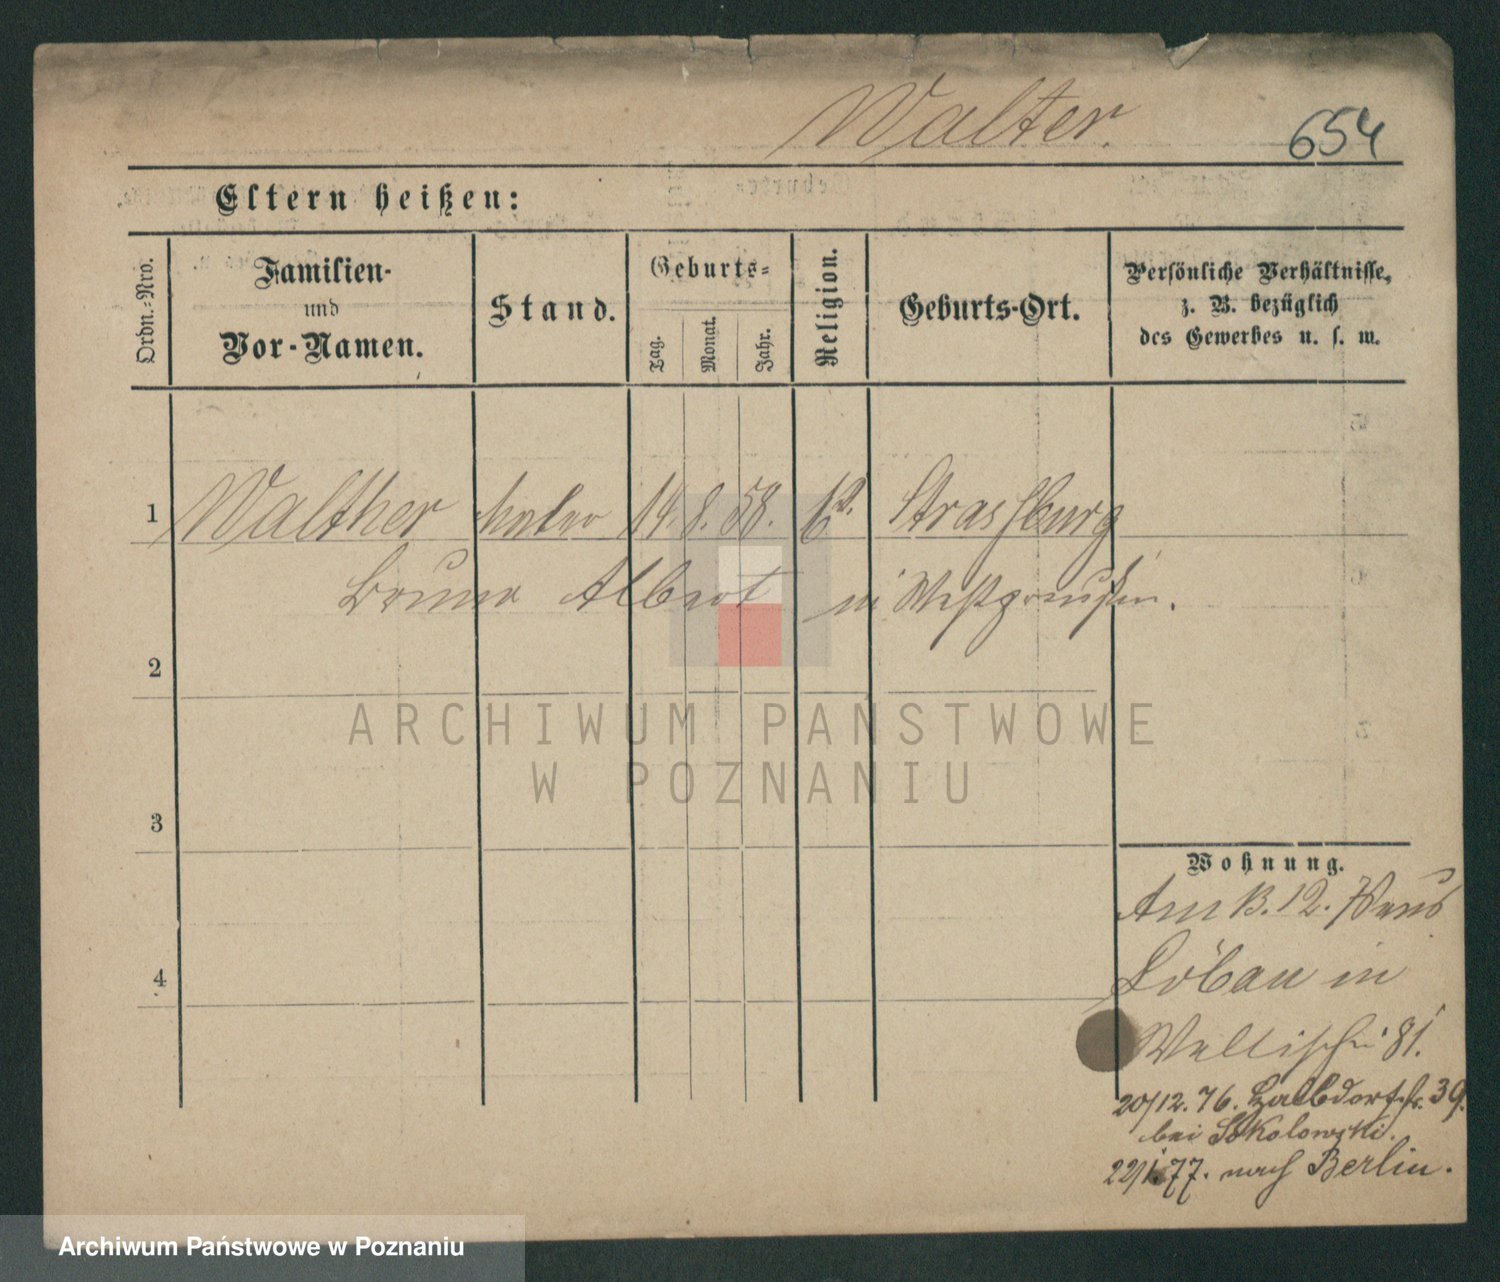 Walter.
654
Eltern heißen:
Ordn.-Nro.
Familien-
und
Vor-Namen.
Stand.
Geburts-
Tag.
Monat.
Jahr.
Religion.
Geburts-Ort.
Persönliche Verhältnisse,
z. B. bezüglich
des Gewerbes u. s. w.
1 Walther 14. 8. 58. Strasburg
Bruno Albert in Westpreußen.
2
ARCHIWUM PAŃSTWOWE
W POZNANIU
3
Wohnung.
12.
4
Löbau in
Wallischei 81.
20/12. 76. Halbdorfstr. 39.
bei Sokolowski.
22/1. 77. nach Berlin.
Archiwum Państwowe w Poznaniu